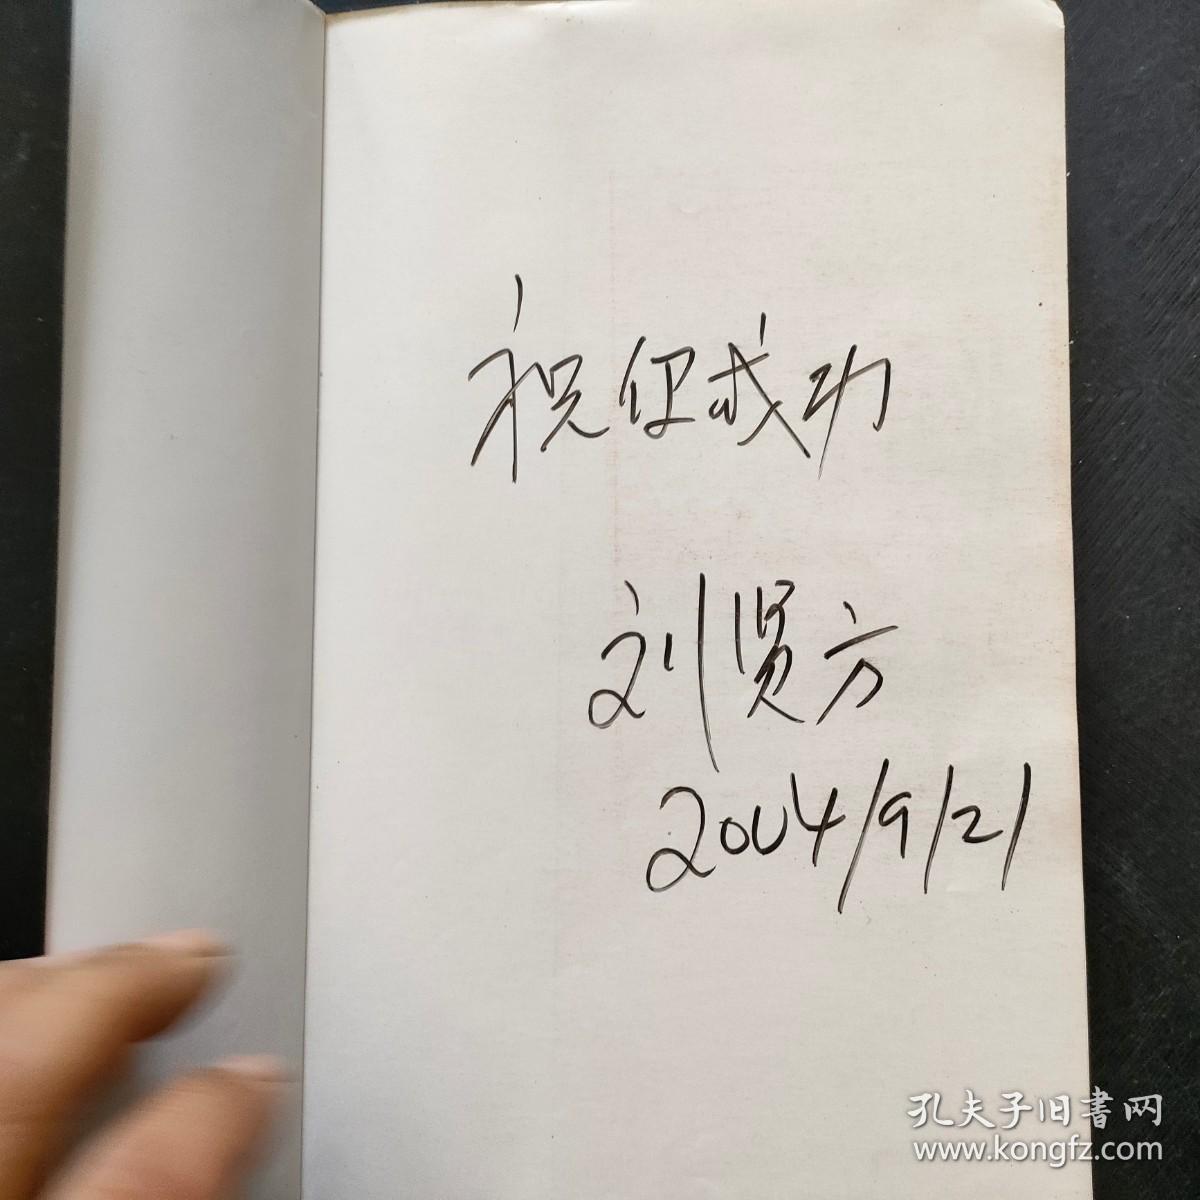 祝你成功
刘贤方
2004/9/21
孔夫子旧書网
www.kongfz.com